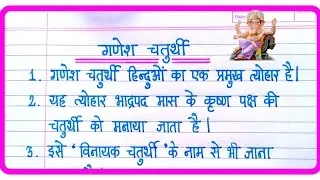 गणेश चतुर्थी
1. गणेश चतुर्थी हिन्दुओं का एक प्रमुख त्योहार है।
2. यह त्योहार भाद्रपद मास के कृष्ण पक्ष की
चतुर्थी को मनाया जाता है।
3. इसे 'विनायक चतुर्थी' के नाम से भी जाना